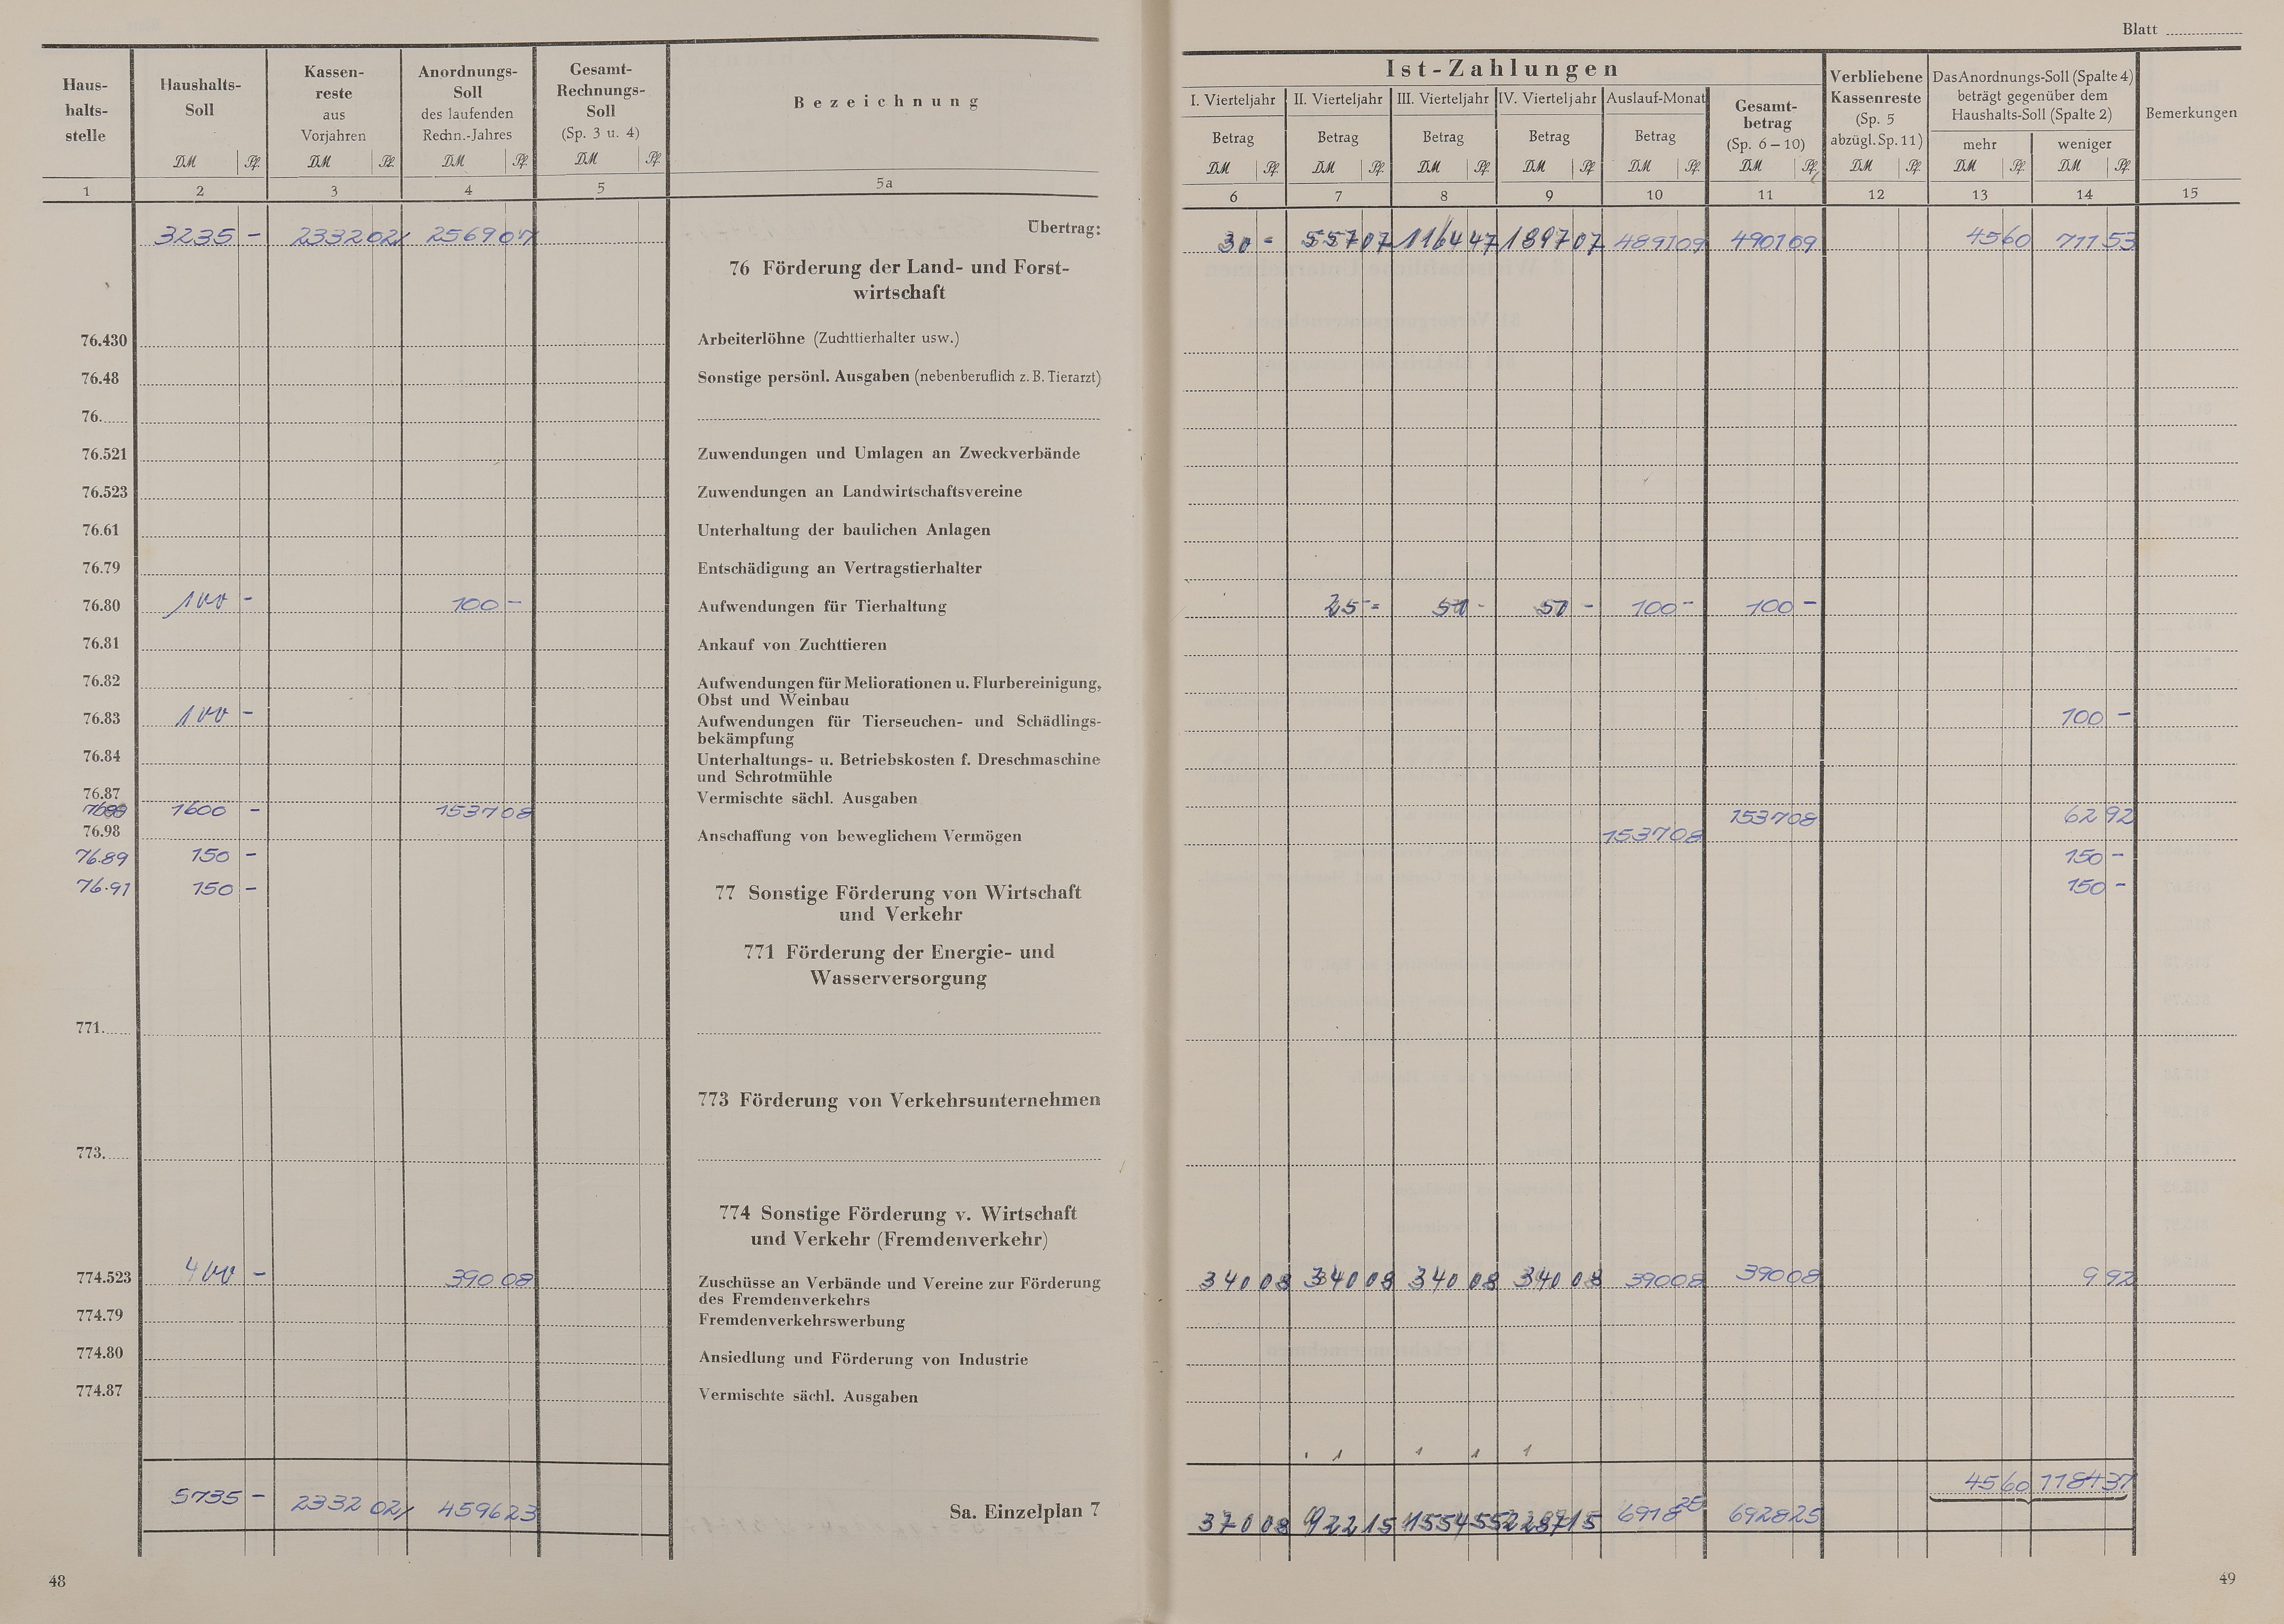 Blatt
Haus-
halts-
stelle
Haushalts-
Soll
Kassen-
reste
aus
Vorjahren
Anordnungs-
Soll
des laufenden
Rechn.-Jahres
Gesamt-
Rechnungs-
Soll
(Sp. 3 u. 4)
Bezeichnung
Ist-Zahlungen
I. Vierteljahr II. Vierteljahr III. Vierteljahr IV. Vierteljahr Auslauf-Monat
Betrag Betrag Betrag Betrag Betrag
Gesamt-
betrag
(Sp. 6–10)
Verbliebene
Kassenreste
(Sp. 5
abzügl. Sp. 11)
Das Anordnungs-Soll (Spalte 4)
beträgt gegenüber dem
Haushalts-Soll (Spalte 2)
mehr weniger
Bemerkungen
DM Pf. DM Pf. DM Pf. DM Pf. DM Pf. DM Pf. DM Pf. DM Pf. DM Pf. DM Pf. DM Pf. DM Pf. DM Pf.
1 2 3 4 5 5a 6 7 8 9 10 11 12 13 14 15
3235 - 2332 02 2569 07 Übertrag: 30 - 557 07 1164 47 1897 07 4891 09 4901 09 45 60 711 53
76 Förderung der Land- und Forst-
wirtschaft
76.430 Arbeiterlöhne (Zuchttierhalter usw.)
76.48 Sonstige persönl. Ausgaben (nebenberuflich z. B. Tierarzt)
76.
76.521 Zuwendungen und Umlagen an Zweckverbände
76.523 Zuwendungen an Landwirtschaftsvereine
76.61 Unterhaltung der baulichen Anlagen
76.79 Entschädigung an Vertragstierhalter
76.80 100 - 100 - Aufwendungen für Tierhaltung 25 - 50 - 50 - 100 - 100 -
76.81 Ankauf von Zuchttieren
76.82 Aufwendungen für Meliorationen u. Flurbereinigung,
Obst und Weinbau
76.83 100 - Aufwendungen für Tierseuchen- und Schädlings- 100 -
bekämpfung
76.84 Unterhaltungs- u. Betriebskosten f. Dreschmaschine
und Schrotmühle
76.87 Vermischte sächl. Ausgaben
1600 - 1537 08 1537 08 1537 08 62 92
76.98 Anschaffung von beweglichem Vermögen
76.89 150 - 150 -
76.91 150 - 150 -
77 Sonstige Förderung von Wirtschaft
und Verkehr
771 Förderung der Energie- und
Wasserversorgung
771.
773 Förderung von Verkehrsunternehmen
773.
774 Sonstige Förderung v. Wirtschaft
und Verkehr (Fremdenverkehr)
774.523 400 - 390 08 Zuschüsse an Verbände und Vereine zur Förderung 340 08 340 08 340 08 340 08 390 08 390 08 9 92
des Fremdenverkehrs
774.79 Fremdenverkehrswerbung
774.80 Ansiedlung und Förderung von Industrie
774.87 Vermischte sächl. Ausgaben
45 60 1184 37
5735 - 2332 02 4596 23 Sa. Einzelplan 7 370 08 922 15 1554 55 2287 15 6918 25 6928 25
48
49